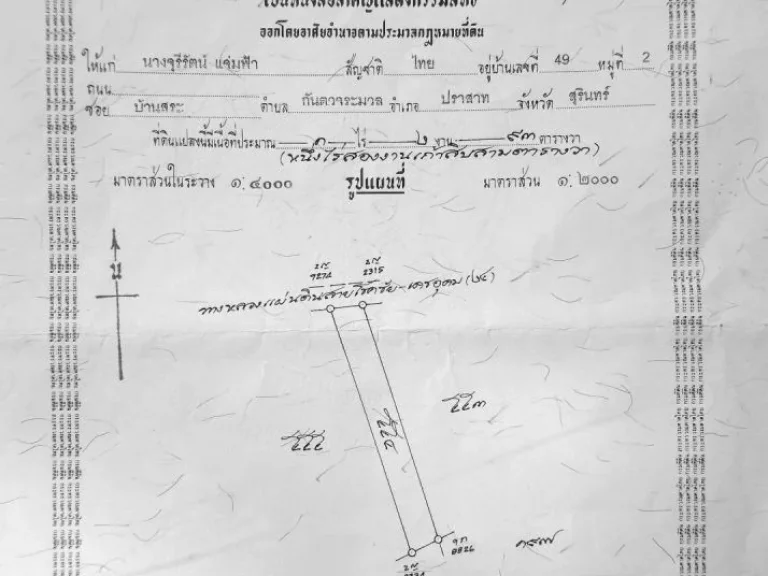 ออกโดยอาศัยอำนาจตามประมวลกฎหมายที่ดิน
ให้แก่ นางจุรีรัตน์ แจ่มฟ้า สัญชาติ ไทย อยู่บ้านเลขที่ 49 หมู่ที่ 2
ถนน
ซอย บ้านสระ ตำบล กันตวจระมวล อำเภอ ปราสาท จังหวัด สุรินทร์
ที่ดินแปลงนี้มีเนื้อที่ประมาณ ๑ ไร่ ๒ งาน ๙๓ ตารางวา
(หนึ่งไร่สองงานเก้าสิบสามตารางวา)
มาตราส่วนในระวาง ๑:๔๐๐๐ รูปแผนที่ มาตราส่วน ๑:๒๐๐๐
น
2315
ทางหลวงแผ่นดินสายโชคชัย-เดชอุดม (๒๔)